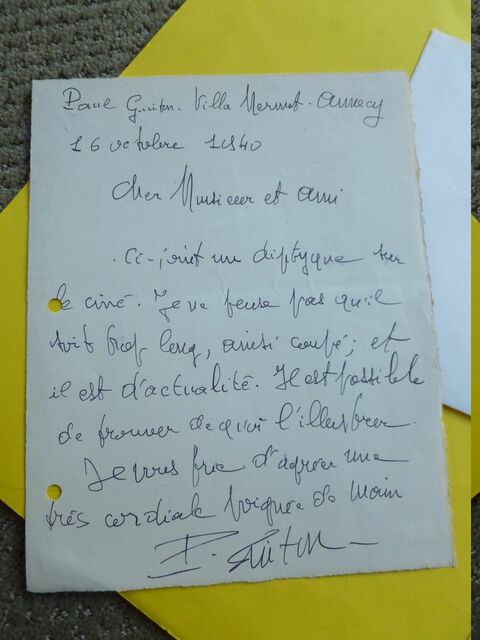 Paul Guiton. Villa Mermet - Annecy
16 octobre 1940
Cher Monsieur et ami
Ci-joint un diptyque sur
le ciné. Je ne pense pas qu'il
soit trop long, ainsi coupé; et
il est d'actualité. Il est possible
de trouver de quoi l'illustrer.
Je vous prie d'agréer une
très cordiale poignée de main
P. Guiton